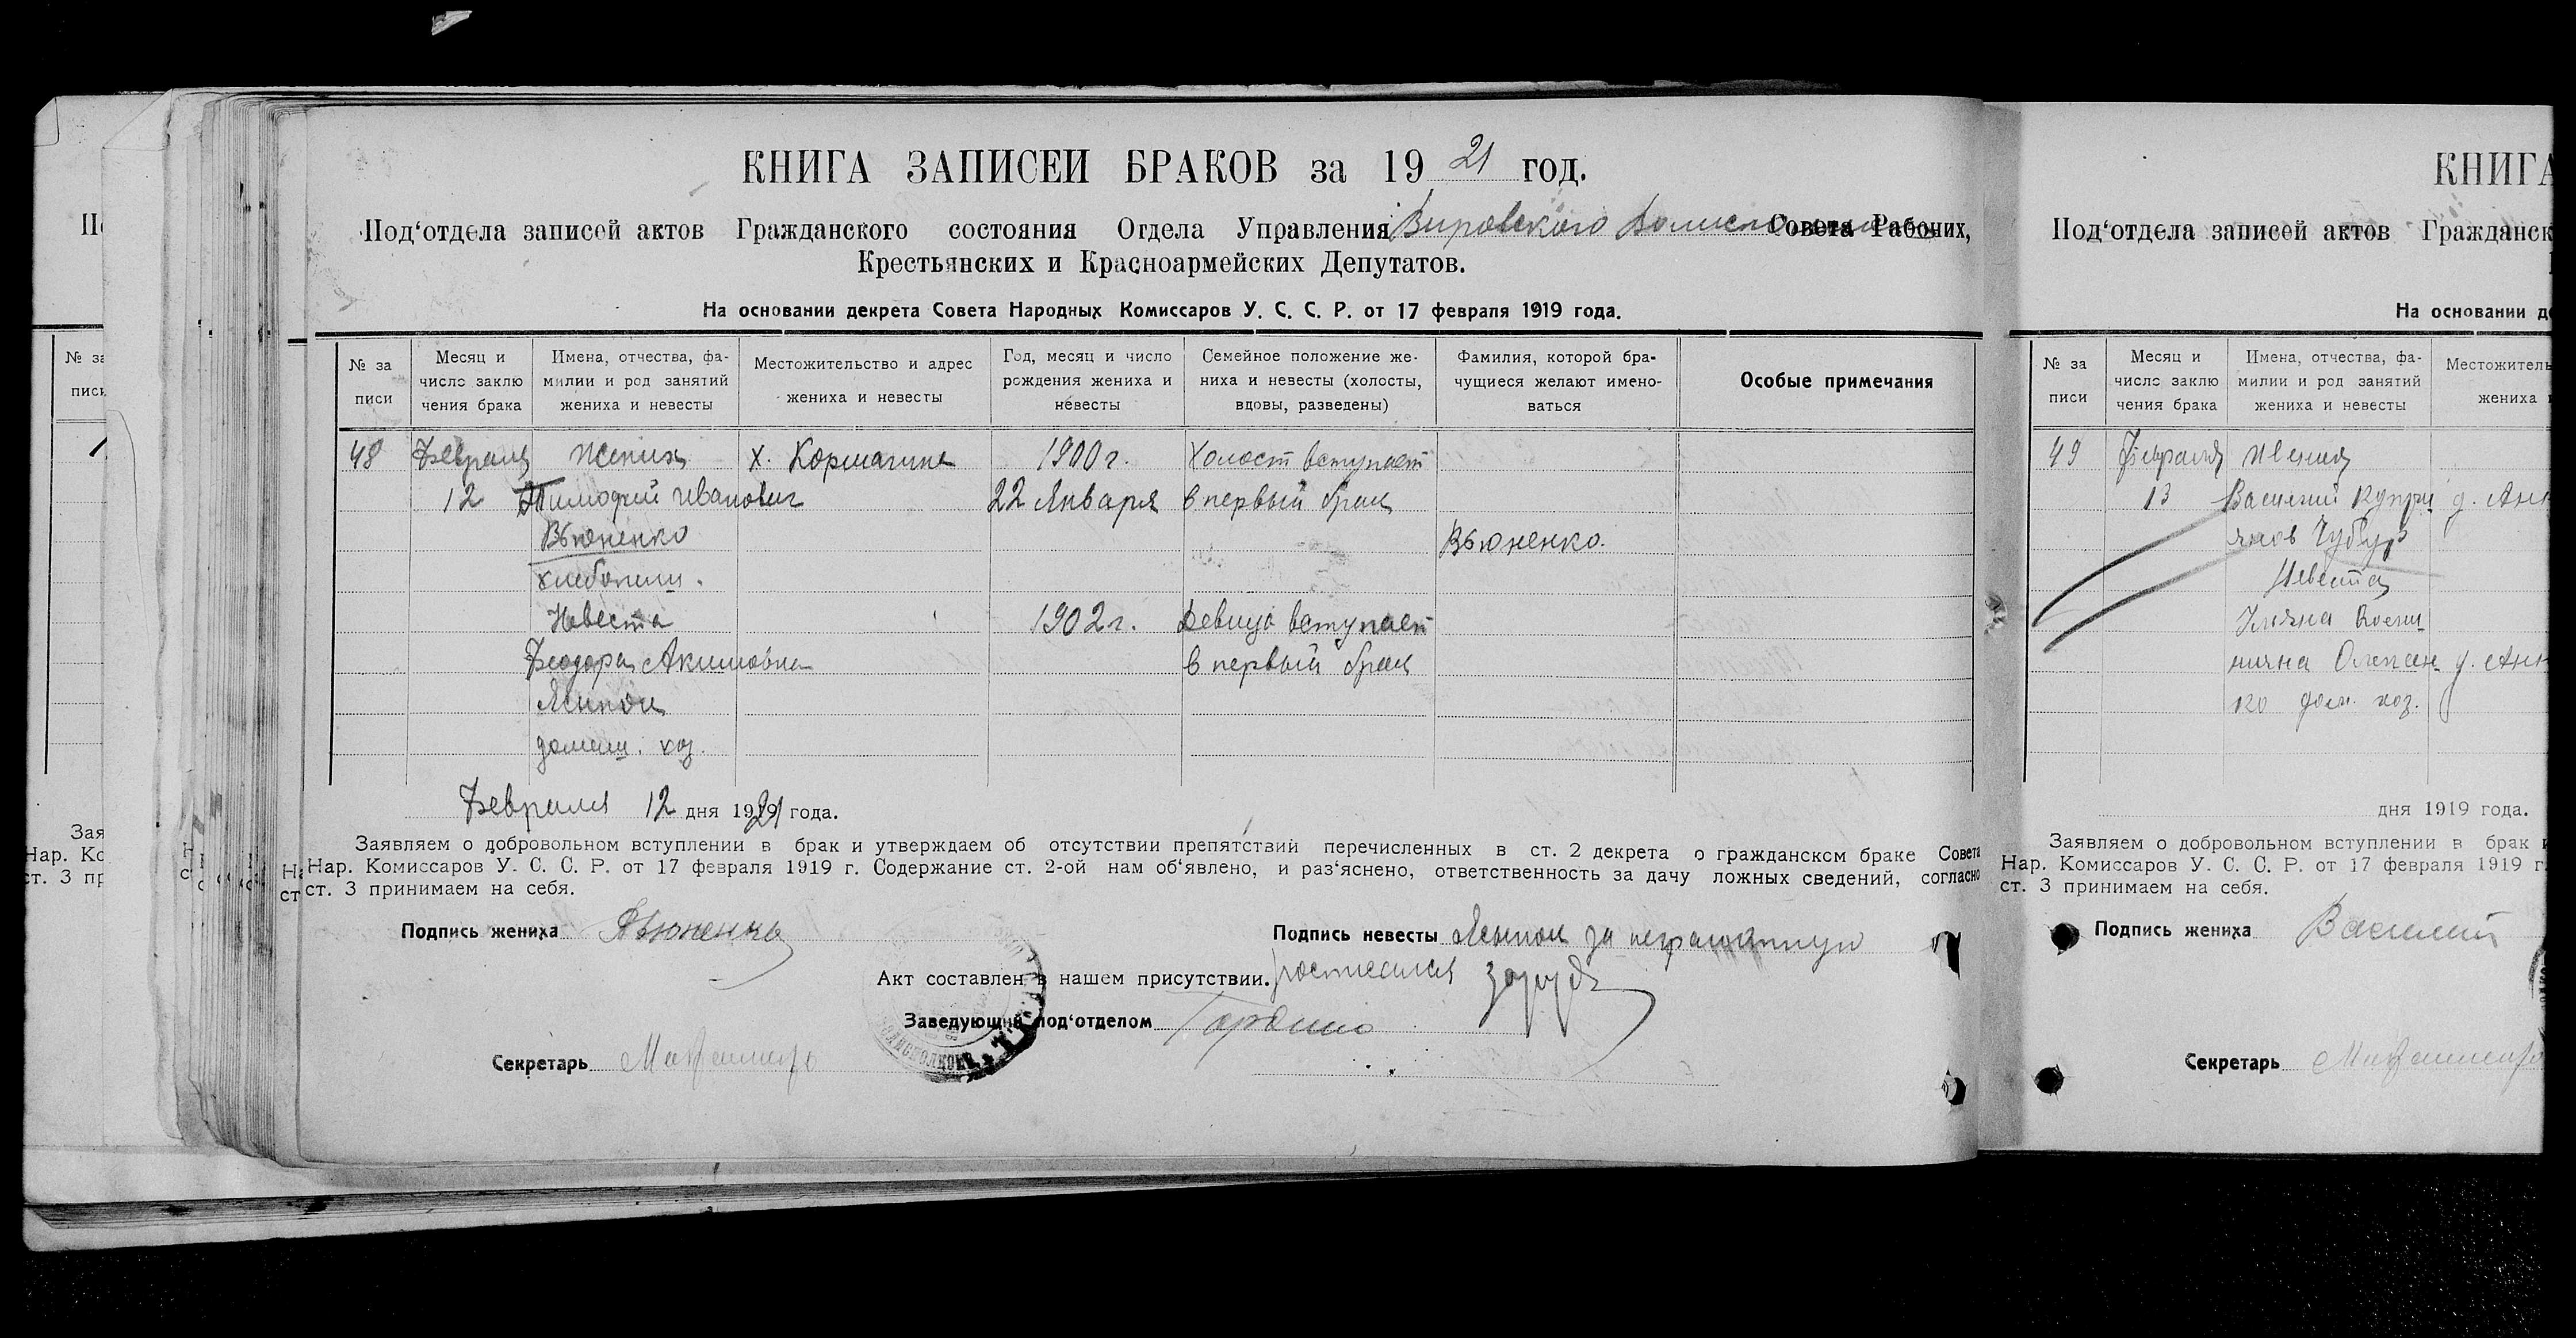 КНИГА ЗАПИСЕЙ БРАКОВ за 1921 год.
Под‘отдела записей актов Гражданского состояния Отдела Управления Вировского Совета Рабочих,
Крестьянских и Красноармейских Депутатов.
На основании декрета Совета Народных Комиссаров У. С. С. Р. от 17 февраля 1919 года.
№ за писи
Месяц и число заклю чения брака
Имена, отчества, фа- милии и род занятий жениха и невесты
Местожительство и адрес жениха и невесты
Год, месяц и число рождения жениха и невесты
Семейное положение же- ниха и невесты (холосты, вдовы, разведены)
Фамилия, которой бра- чущиеся желают имено- ваться
Особые примечания
48 Февраля Жених х. 1900 г. Холост вступает
12 Тимофей Иванович 22 Января в первый брак
Вьюненко Вьюненко.
хлебопаш.
Невеста 1902 г. Девица вступает
Феодора Акимовна в первый брак
домаш. хоз.
Февраля 12 дня 1921 года.
Заявляем о добровольном вступлении в брак и утверждаем об отсутствии препятствий перечисленных в ст. 2 декрета о гражданском браке Совета
Нар. Комиссаров У. С. С. Р. от 17 февраля 1919 г. Содержание ст. 2-ой нам об‘явлено, и раз‘яснено, ответственность за дачу ложных сведений, согласно
ст. 3 принимаем на себя.
Подпись жениха Вьюненко
Подпись невесты за неграмотную
Акт составлен в нашем присутствии. росписался
Заведующий под‘отделом
Секретарь
КНИГА
Под‘отдела записей актов Гражданск
На основании де
№ за писи
Месяц и число заклю чения брака
Имена, отчества, фа- милии и род занятий жениха и невесты
Местожитель жениха
49 Февраля Жених
13 Василий д. Анн
Чубур
Невеста
д. Анн
ко дом. хоз.
дня 1919 года.
Заявляем о добровольном вступлении в брак и
Нар. Комиссаров У. С. С. Р. от 17 февраля 1919 г.
ст. 3 принимаем на себя.
Подпись жениха Василий
Секретарь